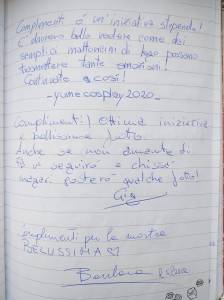 Complimenti è un'iniziativa stupenda!
È davvero bello vedere come dei
semplici mattoncini di lego possano
trasmettere tante emozioni.
Continuate così!
-yumecosplay2020-
Complimenti! Ottima iniziativa
e bellissime foto
Anche se non amante di
vi seguirò e chissà
magari posterò qualche foto!
Gio
complimenti per la mostra
BELLISSIMA
Barbara